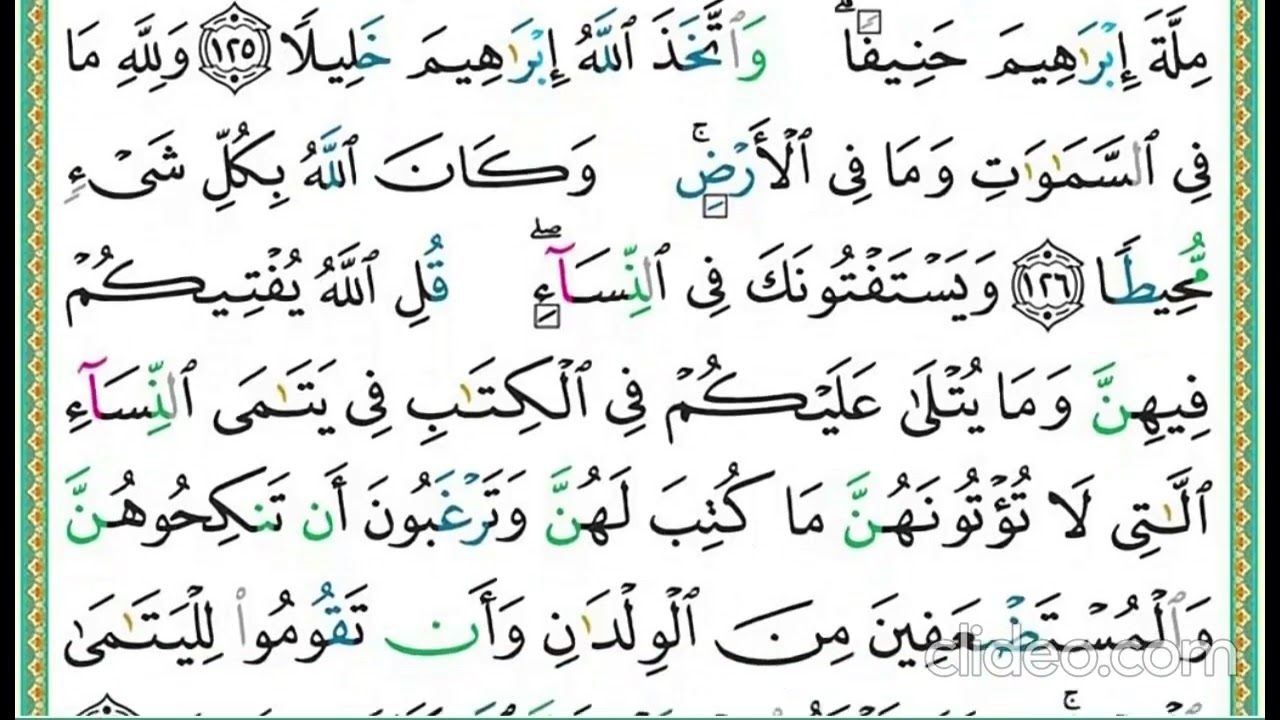 مِلَّةَ إِبْرَاهِيمَ حَنِيفًا ۗ وَٱتَّخَذَ ٱللَّهُ إِبْرَاهِيمَ خَلِيلًا ١٢٥ وَلِلَّهِ مَا
فِي ٱلسَّمَـٰوَٰتِ وَمَا فِي ٱلْأَرْضِ ۚ وَكَانَ ٱللَّهُ بِكُلِّ شَيْءٍ
مُّحِيطًا ١٢٦ وَيَسْتَفْتُونَكَ فِي ٱلنِّسَآءِ ۖ قُلِ ٱللَّهُ يُفْتِيكُمْ
فِيهِنَّ وَمَا يُتْلَىٰ عَلَيْكُمْ فِي ٱلْكِتَـٰبِ فِي يَتَـٰمَى ٱلنِّسَآءِ
ٱلَّـٰتِي لَا تُؤْتُونَهُنَّ مَا كُتِبَ لَهُنَّ وَتَرْغَبُونَ أَن تَنكِحُوهُنَّ
وَٱلْمُسْتَضْعَفِينَ مِنَ ٱلْوِلْدَٰنِ وَأَن تَقُومُوا۟ لِلْيَتَـٰمَىٰ
clideo.com